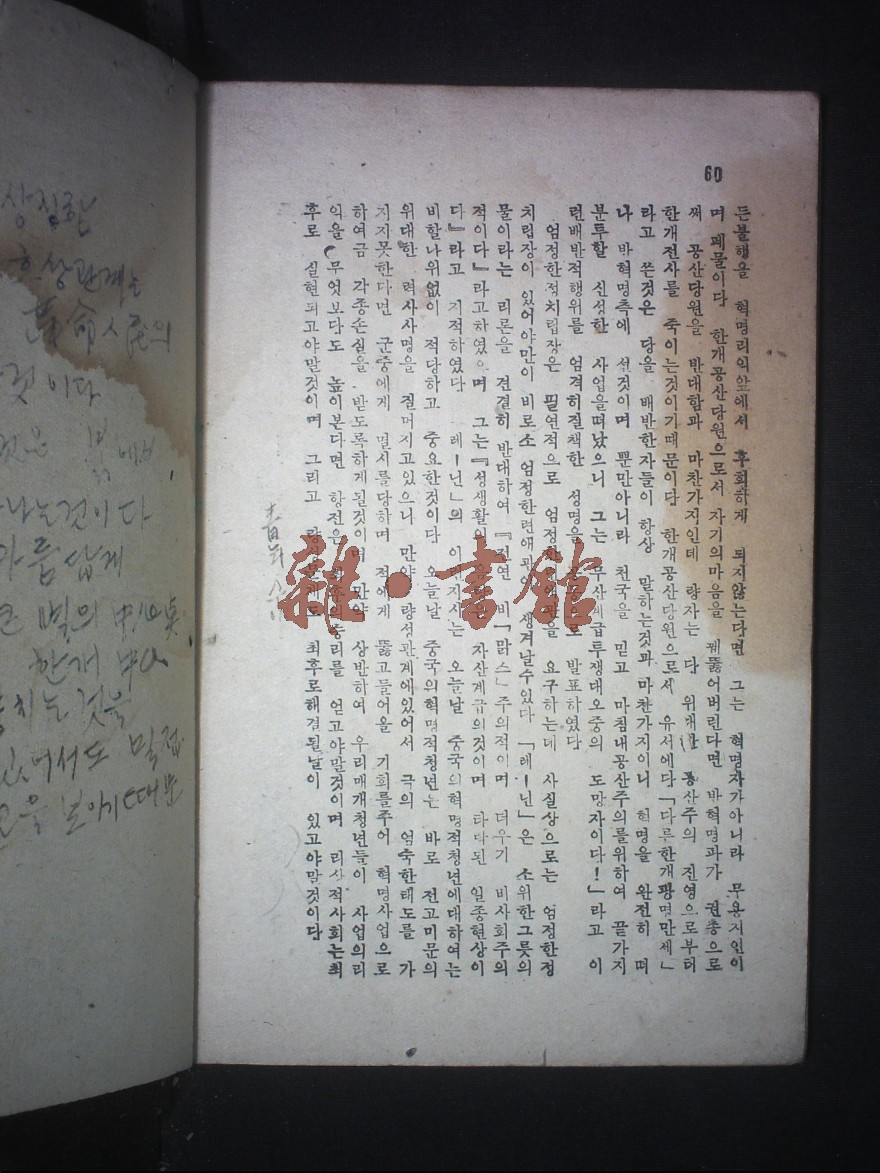 60
든불행을 혁명리익앞에서 후회하게 되지않는다면 그는 혁명자가아니라 무용지인이
며 폐물이다 한개공산당원으로서 자기의마음을 꿰뚫어버린다면 반혁명과가 권총으로
써 공산당원을 반대함과 마찬가지인데 량자는 다 위대한 공산주의 진영으로부터
한개전사를 죽이는것이기때문이다 한개공산당원으로서 유서에다 「다른한개광명만세」
라고 쓴것은 당을 배반한자들이 항상 말하는것과 마찬가지이니 혁명을 완전히 떠
나 반혁명측에 선것이며 뿐만아니라 천국을 믿고 마침내공산주의를위하여 끝가지
분투할 신성한 사업을떠났으니 그는 무산계급투쟁대오중의 도망자이다!」라고 이
런배반적행위를 엄격히질책한 성명을 발표하였다
엄정한적치립장은 필연적으로 엄정한 요구하는데 사실상으로는 엄정한정
치립장이 있어야만이 비로소 엄정한련애관이 생겨날수있다 「레ー닌」은 소위한그릇의
물이라는 리론을 견결히 반대하여 『전연 비「맑스」주의적이며 더우기 비사회주의
적이다』라고하였으며 그는『성생활의 자산계급의것이며 타락된 일종현상이
다』라고 지적하였다 「레ー닌」의 이런지시는 오늘날 중국의혁명적청년에대하여는
비할나위없이 적당하고 중요한것이다 오늘날 중국의혁명적청년는 바로 전고미문의
위대한 력사사명을 질머지고있으니 만약 량성관계에있어서 극의 엄숙한태도를 가
지지못한다면 군중에게 멸시를당하며 적에게 뚫고들어올 기회를주어 혁명사업으로
하여금 각종손실을 받도록하게될것이며 만약 상반하여 우리매개청년들이 사업의리
익을 무엇보다도 높이본다면 항전은 최후의승리를 얻고야말것이며 리상적사회는최
후로 실현되고야말것이며 그리고 량성문제도 최후로해결될날이 있고야말것이다
雜·書館
상징한
상관계는
革命人民의
것이다
것은
나는것이다
아름답게
별의 中心
한개 中心
것을
있어서도 밀접
보아기때문